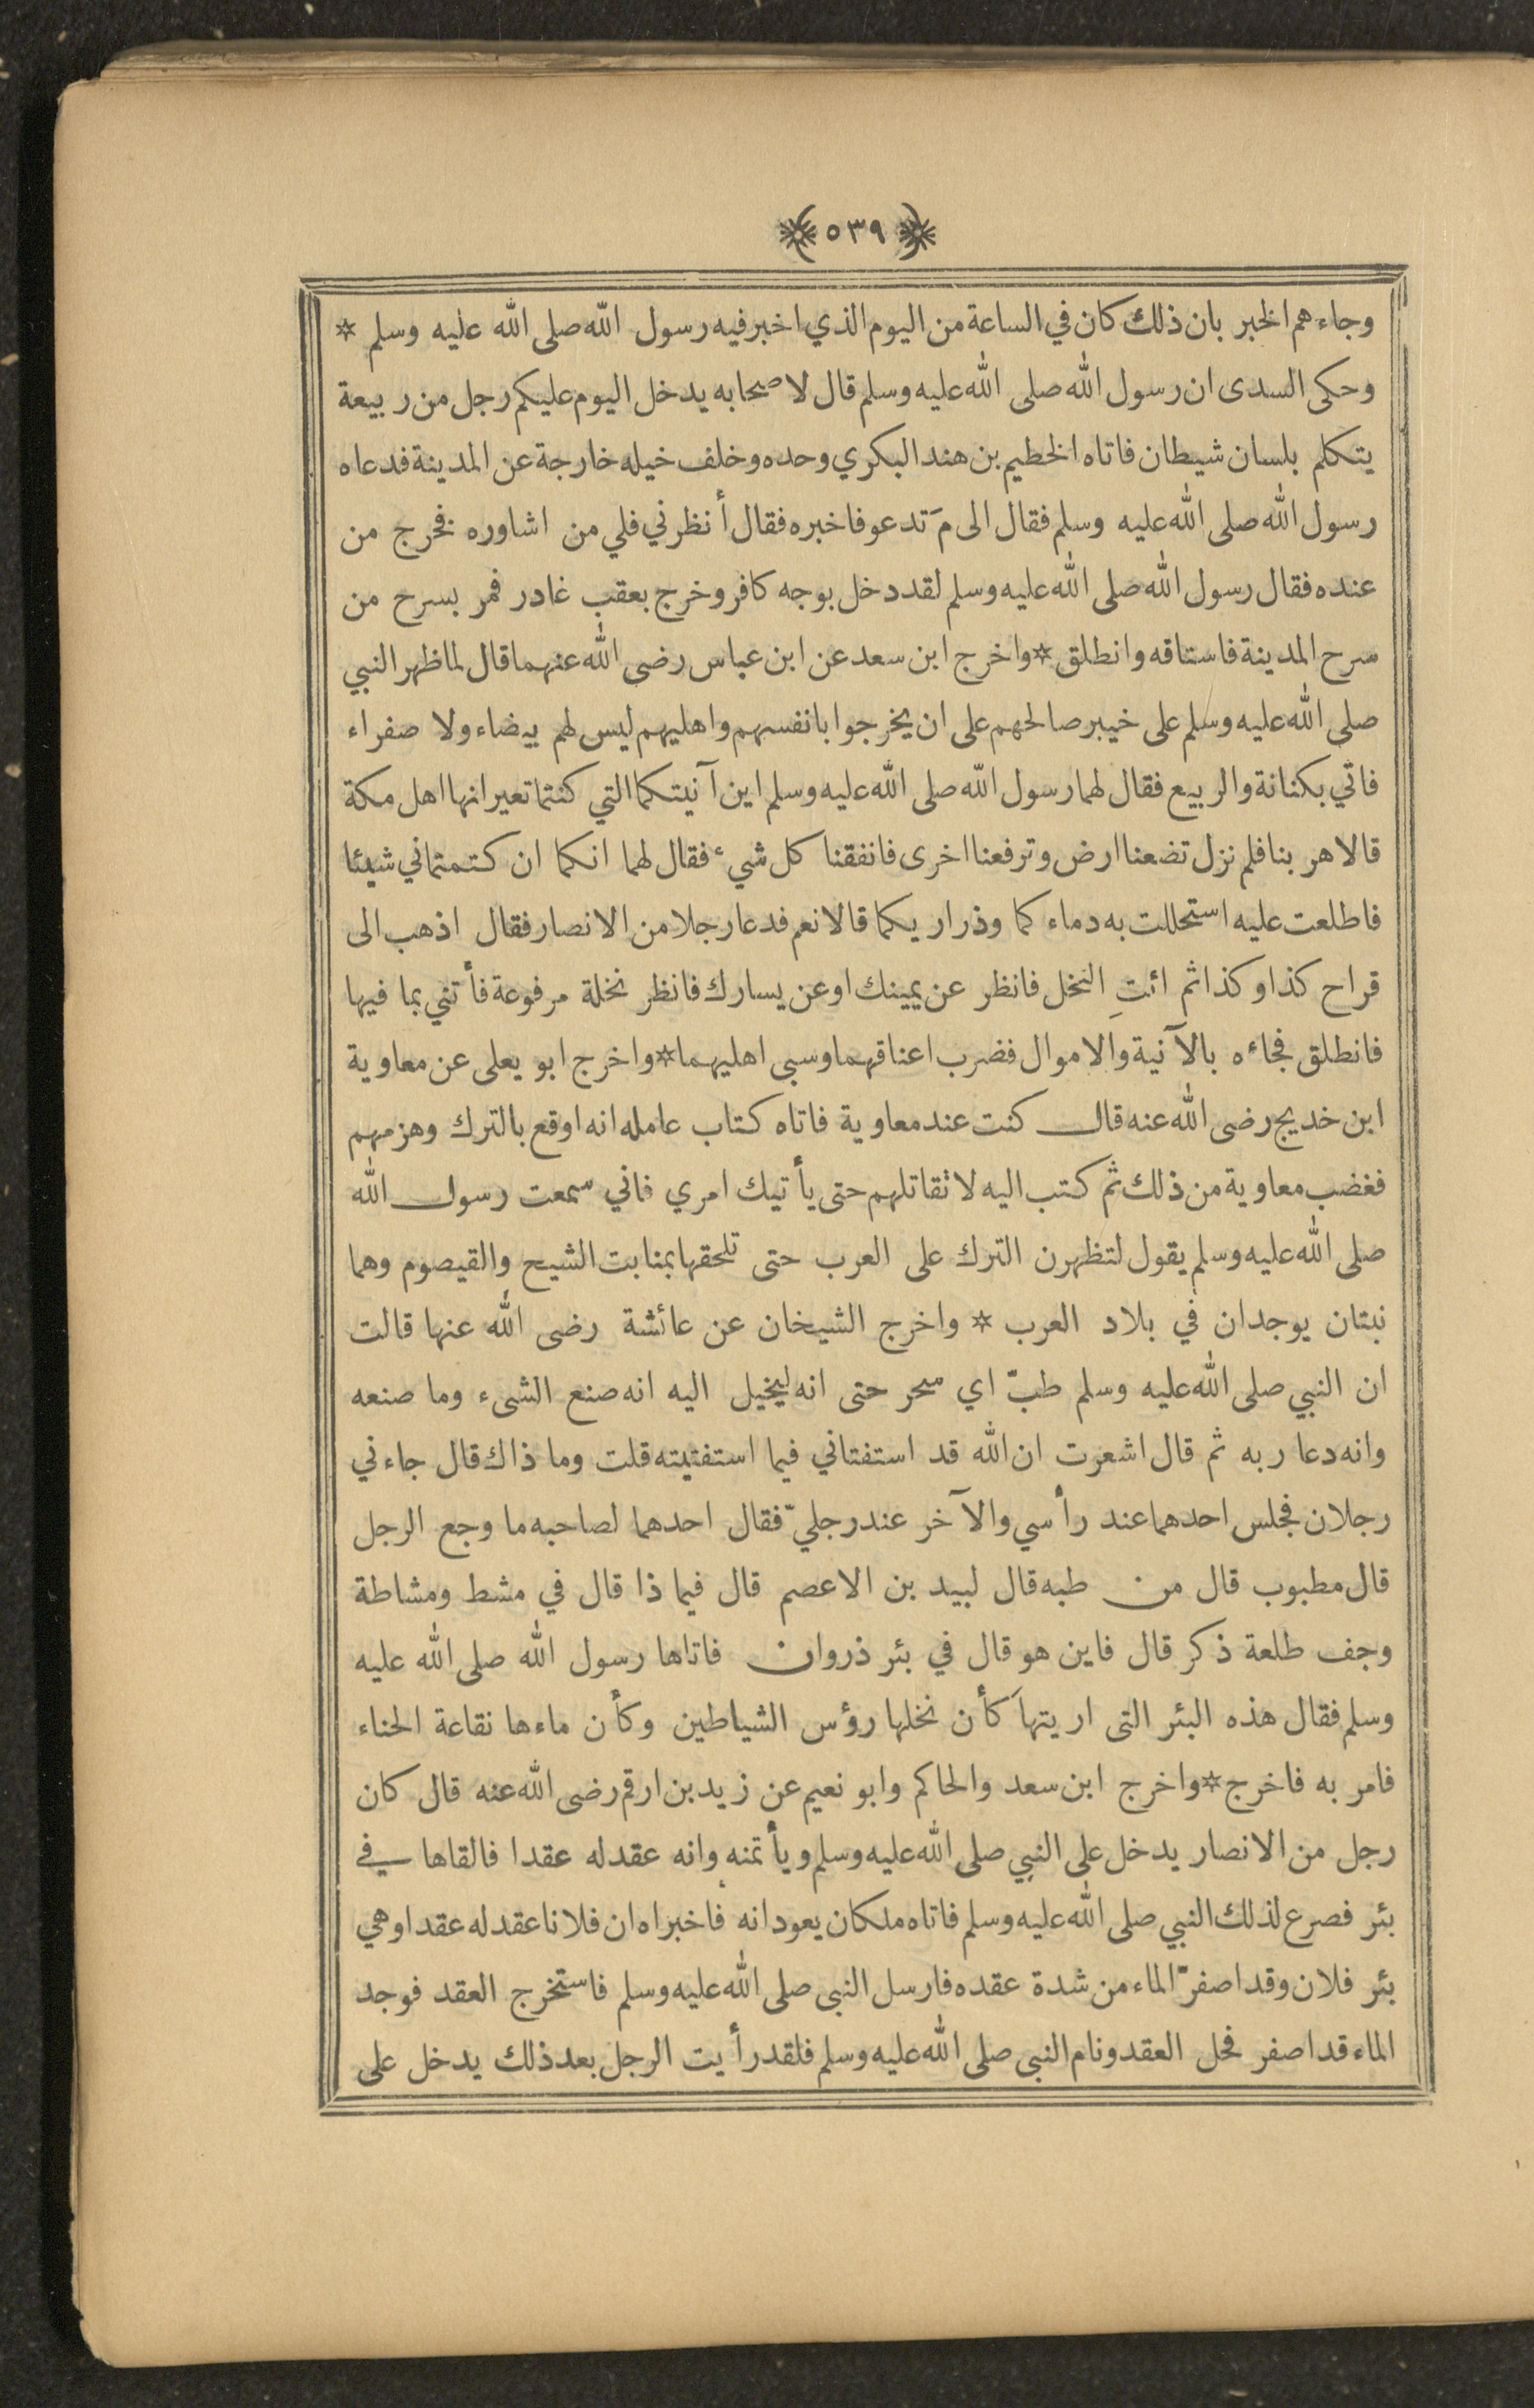 ٥٣٩
وجاءهم الخبر بان ذلك كان في الساعة من اليوم الذي اخبر فيه رسول الله صلى الله عليه وسلم *
وحكى السدى ان رسول الله صلى الله عليه وسلم قال لاصحابه يدخل اليوم عليكم رجل من ربيعة
يتكلم بلسان شيطان فاتاه الخطيم بن هند البكري وحده وخلف خيله خارجة عن المدينة فدعاه
رسول الله صلى الله عليه وسلم فقال الى مَ تدعو فاخبره فقال أنظرني فلي من اشاوره فخرج من
عنده فقال رسول الله صلى الله عليه وسلم لقد دخل بوجه كافر وخرج بعقب غادر فمر بسرح من
سرح المدينة فاستاقه وانطلق * واخرج ابن سعد عن ابن عباس رضى الله عنهما قال لما ظهر النبي
صلى الله عليه وسلم على خيبر صالحهم على ان يخرجوا بانفسهم واهليهم ليس لهم بيضاء ولا صفراء
فاتي بكنانة والربيع فقال لهما رسول الله صلى الله عليه وسلم اين آنيتكما التي كنتما تعيرانها اهل مكة
قالا هربنا فلم نزل تضعنا ارض وترفعنا اخرى فانفقنا كل شيء فقال لهما انكما ان كتمتماني شيئا
فاطلعت عليه استحللت به دماء كما وذراريكما قالا نعم فدعا رجلا من الانصار فقال اذهب الى
قراح كذا وكذا ثم ائتِ النخل فانظر عن يمينك او عن يسارك فانظر نخلة مرفوعة فأتني بما فيها
فانطلق فجاءه بالآنية والاموال فضرب اعناقهما وسبى اهليهما * واخرج ابو يعلى عن معاوية
ابن خديج رضى الله عنه قال كنت عند معاوية فاتاه كتاب عامله انه اوقع بالترك وهزمهم
فغضب معاوية من ذلك ثم كتب اليه لا تقاتلهم حتى يأتيك امري فاني سمعت رسول الله
صلى الله عليه وسلم يقول لتظهرن الترك على العرب حتى تلحقها بمنابت الشيح والقيصوم وهما
نبتان يوجدان في بلاد العرب * واخرج الشيخان عن عائشة رضى الله عنها قالت
ان النبي صلى الله عليه وسلم طبّ اي سحر حتى انه ليخيل اليه انه صنع الشىء وما صنعه
وانه دعا ربه ثم قال اشعرت ان الله قد استفتاني فيما استفتيته قلت وما ذاك قال جاءني
رجلان فجلس احدهما عند رأسي والآخر عند رجليّ فقال احدهما لصاحبه ما وجع الرجل
قال مطبوب قال من طبه قال لبيد بن الاعصم قال فيما ذا قال في مشط ومشاطة
وجف طلعة ذكر قال فاين هو قال في بئر ذروان فاتاها رسول الله صلى الله عليه
وسلم فقال هذه البئر التى اريتها كأن نخلها رؤس الشياطين وكأن ماءها نقاعة الحناء
فامر به فاخرج * واخرج ابن سعد والحاكم وابو نعيم عن زيد بن ارقم رضى الله عنه قال كان
رجل من الانصار يدخل على النبي صلى الله عليه وسلم ويأتمنه وانه عقد له عقدا فالقاها في
بئر فصرع لذلك النبي صلى الله عليه وسلم فاتاه ملكان يعودانه فاخبراه ان فلانا عقد له عقدا وهي
بئر فلان وقد اصفرّ الماء من شدة عقده فارسل النبى صلى الله عليه وسلم فاستخرج العقد فوجد
الماء قد اصفر فحل العقد ونام النبى صلى الله عليه وسلم فلقد رأيت الرجل بعد ذلك يدخل على